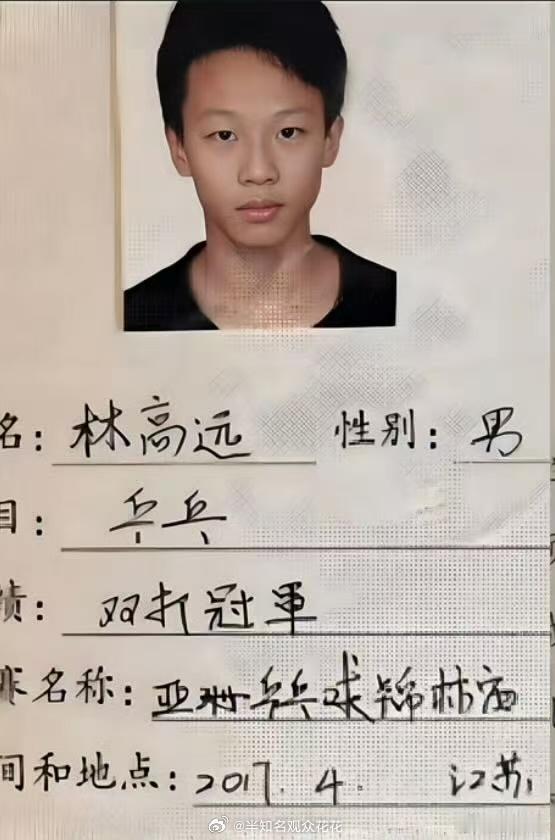 名：林高远 性别：男
目：乒乓
绩：双打冠军
名称：亚洲乒乓球锦标赛
间和地点：2017.4. 江苏
@半知名观众花花